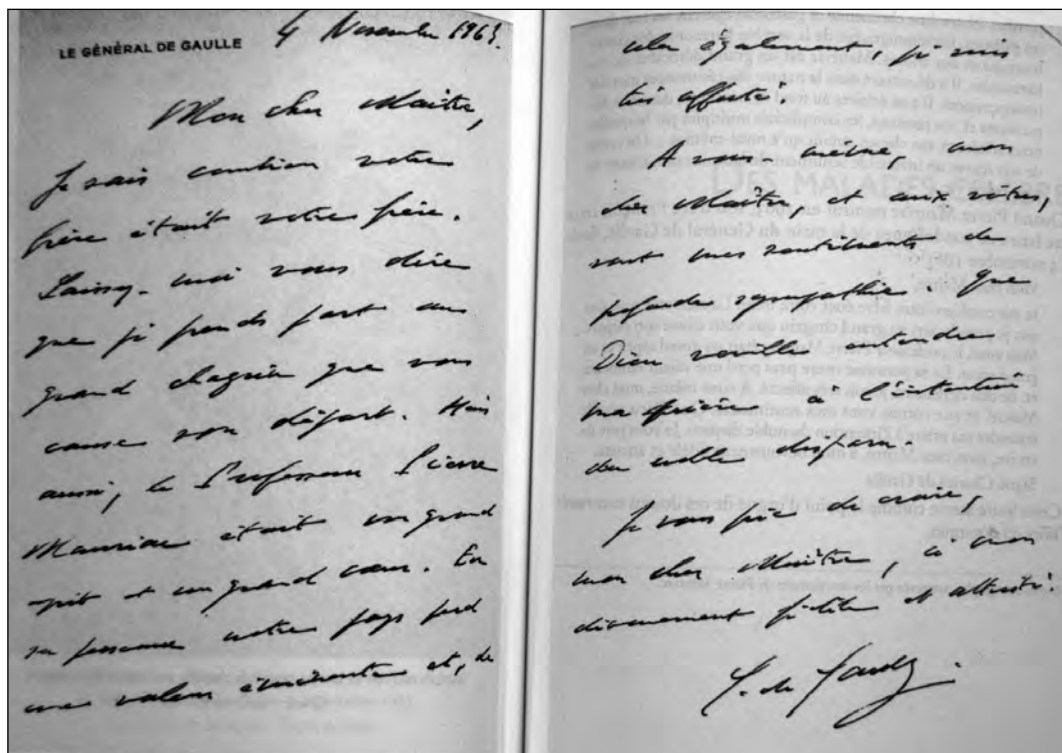 LE GÉNÉRAL DE GAULLE
4 Novembre 1963.
Mon cher Maître,
Je sais combien votre
frère était votre frère.
Laissez-moi vous dire
que je prends part au
grand chagrin que vous
cause son départ. Mais
aussi, le Professeur Pierre
Mauriac était un grand
esprit et un grand cœur. En
sa personne notre pays perd
une valeur éminente et, de
cela également, je suis
très affecté.
A vous-même, mon
cher Maître, et aux vôtres,
vont mes sentiments de
profonde sympathie. Que
Dieu veuille entendre
ma prière à l'intention
du noble disparu.
Je vous prie de croire,
mon cher Maître, à mon
dévouement fidèle et attristé.
C. de Gaulle.